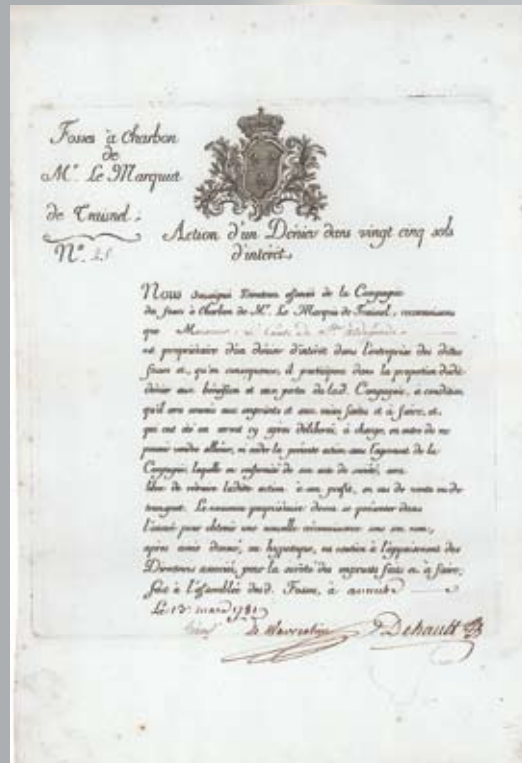 Fosses à Charbon
de
Mr. Le Marquis
de Traisnel.
N°.
Action d'un Dénier dans vingt cinq sols
d'intérêt.
Nous Soussignés Directeur associés de la Compagnie
des fosses à Charbon de Mr. Le Marquis de Traisnel, reconnoissons
que Monsieur
est propriétaire d'un dénier d'intérêt dans l'entreprise des dittes
fosses et, qu'en conséquence, il participera dans la proportion dudit
dénier aux bénéfices et aux pertes de lad. Compagnie, à condition
qu'il sera soumis aux emprunts et aux mises faites et à faire, et
qui ont été ou seront cy après délibérés, à charge, en outre de ne
pouvoir vendre, aliéner, ni céder la présente action sans l'agrément de la
Compagnie laquelle en conformité de son acte de société, sera
libre de retraire laditte action à son profit, en cas de vente ou de
transport. Le nouveau propriétaire devra se présenter dans
l'année pour obtenir une nouvelle reconnoissance sous son nom,
après avoir donné, ou hypotèque, ou caution à l'appaisement des
Directeurs associés, pour la sûreté des emprunts faits ou à faire,
fait à l'assemblée desd. Fosses, à
Le 13 mars 1781
Dehault